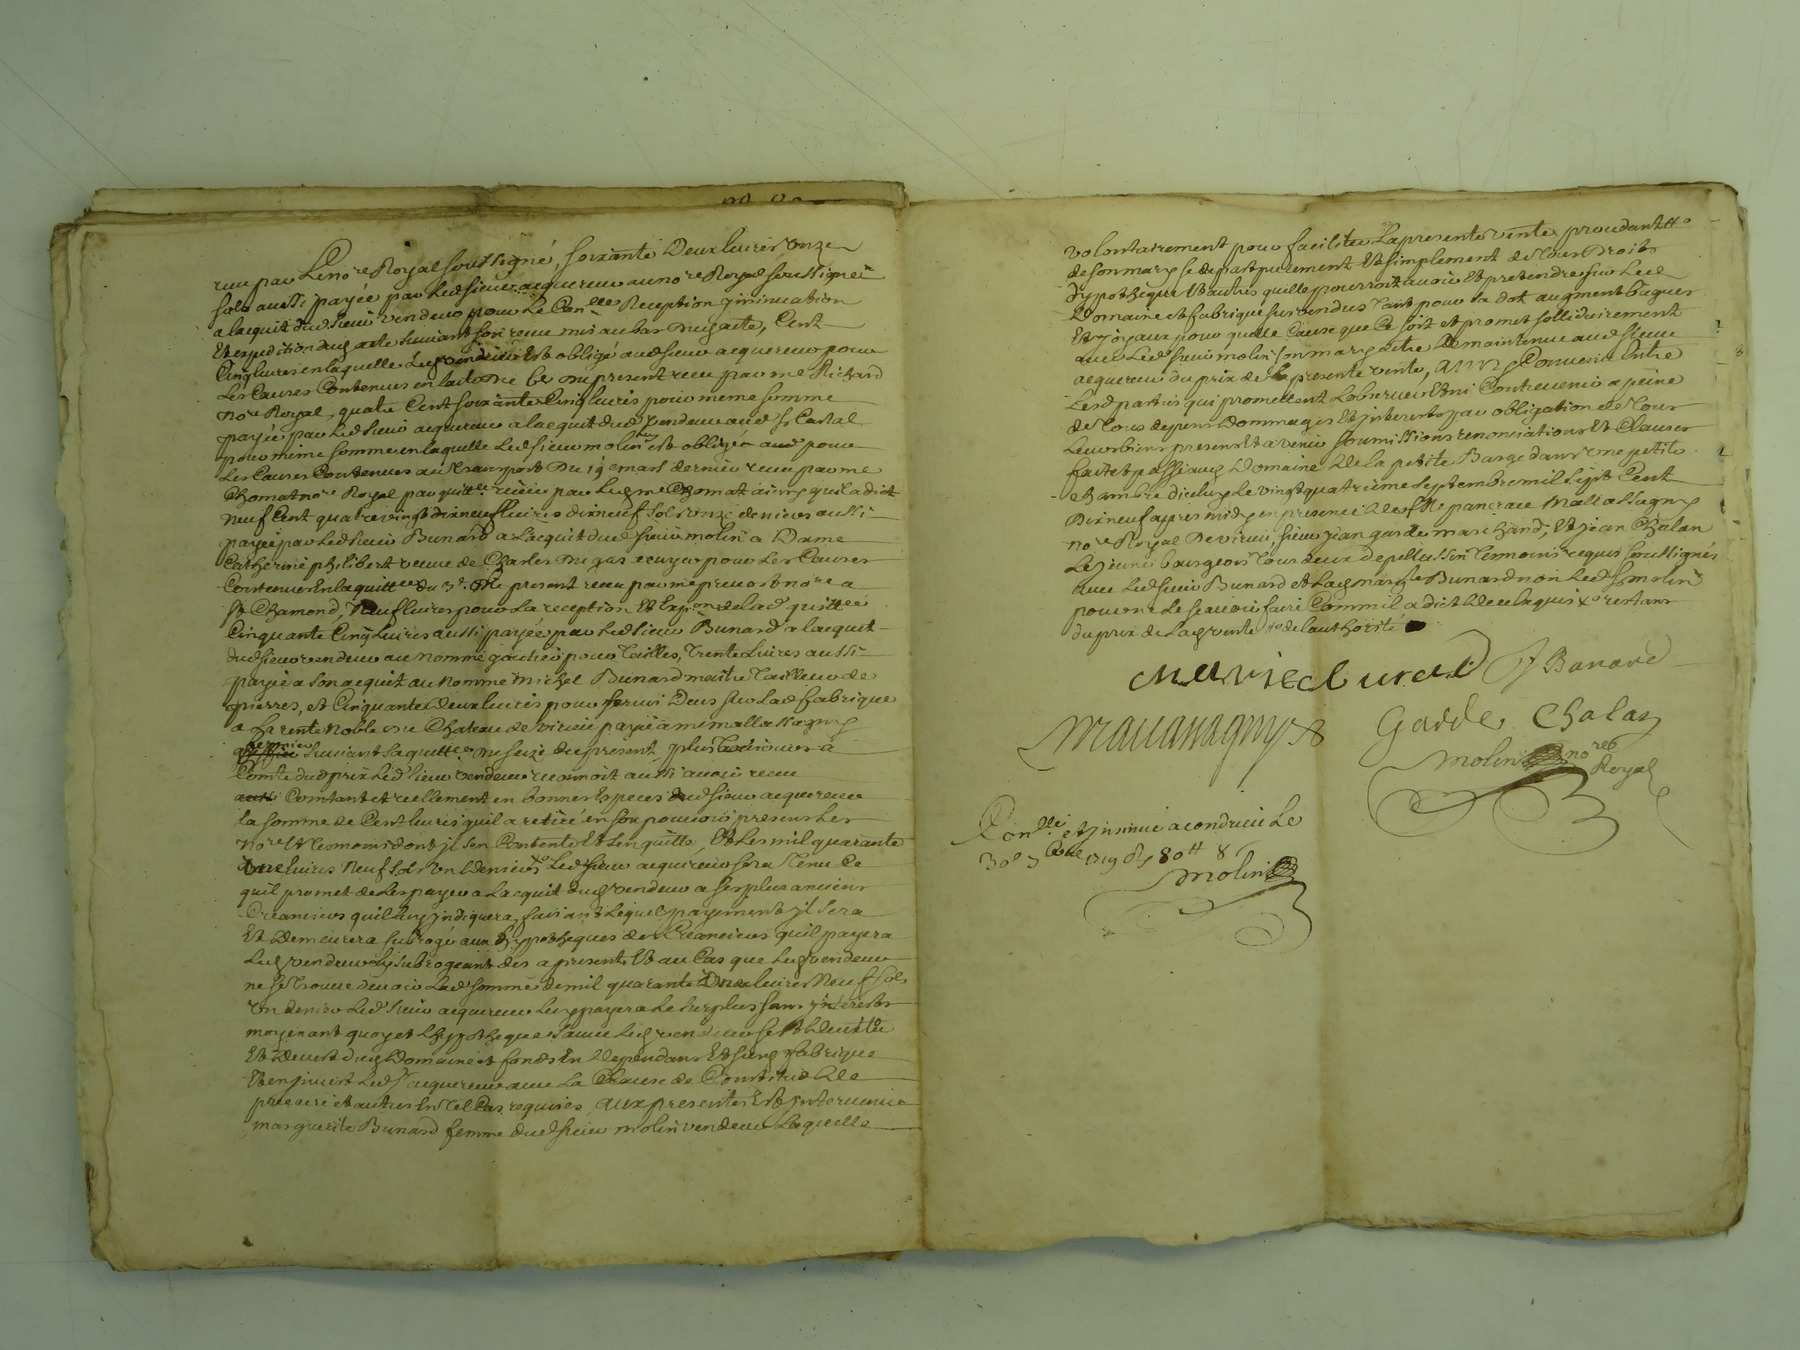 receu par Le no.re Royal soussigné, soixante Deux livres onze
sols aussi payée par Led sieur acquereur au no.re Royal soussigné
a lacquit dud sieur vendeur pour Le Con.lle Reception ginsinuation
Et expedition dud acte suivant son receu mis au bas dud acte, Cent
Cinq livres en laquelle Led vendeur Est obligé aud sieur acquereur pour
Les Causes Contenues en lacte du present receu par me Richard
no.re Royal, quatre Cent soixante Cinq livres pour meme somme
payée par Led sieur acquereur a lacquit dud vendeur aud s.r Castal
pour même somme en laquelle Led sieur molin est obligé aud pour
Les Causes Contenues au transport Du 19e mars dernier receu par me
Thomat no.re Royal par quitt.ce receüe par Led me Thomat ainsy quil a dict
neuf Cent quatre vingt dix neuf livres dix neuf sols onze deniers aussi
payée par Led sieur Bunard a Lacquit dud sieur molin a Dame
Catherine philibert veuve de Charles Dugas ecuyer pour Les Causes
Contenues En la quitt.ce du 3e. du present receu par me no.re a
st Chamond, Neuf livres pour La reception Et Exp.on de lad quitt.ce
Cinquante Cinq livres aussi payée par Led sieur Bunard a lacquit
dud sieur vendeur au nommé pour Tailles, Trente livres aussi
payée a son acquit au nomme Michel Bunard maitre Tailleur de
pierres, et Cinquante Deux livres pour servis Deus sur Lad fabrique
a La rente noble du Chateau de virieu payée a me mallassagny
fermier suivant sa quitt.ce du seize du present, plus a
Comte dud prix Led sieur vendeur reconnoit aussi avoir receu
Comtant et reellement en bonnes Especes dud sieur acquereur
La somme de Cent livres quil a retiré en son pouvoir presens Les
No.re Et Tesmoins dont jl sen Contente Et Len quitte, Et Les mil quarante
livres Neuf sols un Deniers Led sieur acquereur sera Tenu Ce
quil promet de Les payer a Lacquit dud vendeur a ses plus anciens
Creanciers quil luy jndiquera, suivant Lequel payement jl sera
Et Demeurera subrogé aux hypotheques des Creanciers quil payera
Led vendeur Ly subrogeant des a present, Et au Cas que Led vendeur
ne se Trouve devoir Lad somme de mil quarante livres Neuf sols
un denier Led sieur acquereur Luy payera Le surplus sans jnterests
moyenant quoy et Lhypotheque sauve Led vendeur sest Devetu
Et Devest dud Domaine et fonds En Dependans Et sud fabrique
Et en jnvest Led s.r acquereur avec La Clause de Constitut De
precaire et autres En tel Cas requises, aux presentes Est jntervenüe
marguerite Bunard femme dud sieur molin vendeur Laquelle
volontairement pour faciliter La presente vente procedant
de son mary se depart purement Et simplement de Tous Droits
hypotheques Et autres quelle pourroit avoir Et pretendre sur Led
Domaine et fabrique sus vendus Tant pour sa dot augment bagues
Et joyaux pour quelle Cause que Ce soit et promet sollidairement
avec Led sieur molin son mary detre De maintenue aud sieur
acquereur du prix de La presente vente, ainsy Convenu Entre
Lesd parties qui promettent Lobserver Et ni Contrevenir a peine
de Tous depens Dommages Et jnterests par obligation de Tous
Leurs biens presens Et avenir soumissions renonciations Et Clauses
fait et passé aud Domaine De la petite Barge dans une petite
chambre dicelluy Le vingt quatrieme septembre mil sept Cent
Dix neuf apres midy en presence de s.r pancrace Mallassagny
no.re Royal De virieu, sieur jean garde marchand, Et jean Chalan
Le jeune bourgeois Tous deux de pellussin Temoins requis soussignés
avec Led sieur Bunard et La marg.te Bunard non Led s.r molin
pour ne Le sçavoir faire Comm il a dict De ce Enquis restans
du prix de Lad vente de lauthorité
J Bunard
Mallassagny
Garde Chalan
Molin no.re Royal
Con.llé et jnsinué a condrieu Le
30e 7bre 1719
Molin